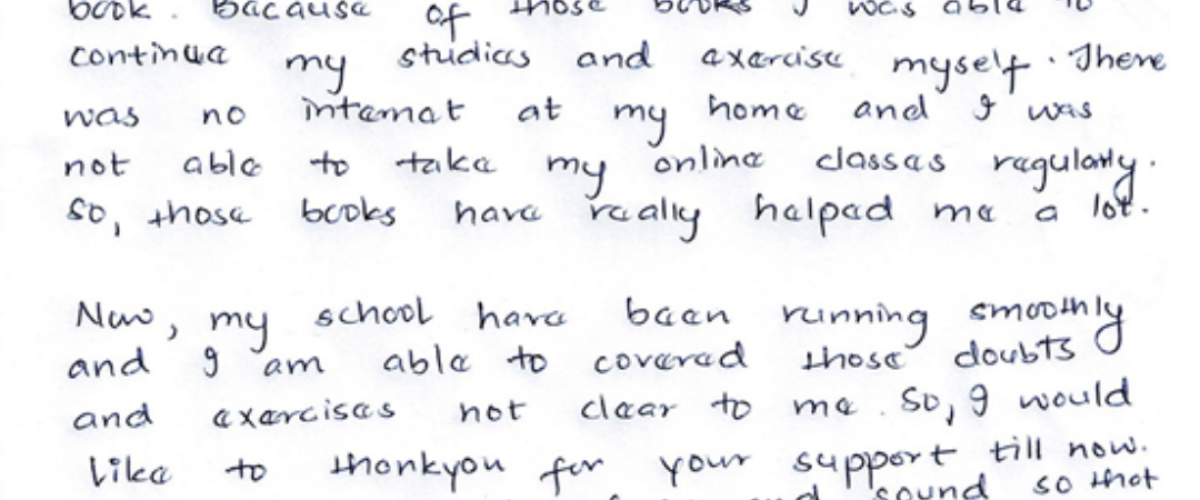 book. Because of those books I was able to
continue my studies and exercise myself. There
was no internet at my home and I was
not able to take my online classes regularly.
So, those books have really helped me a lot.
Now, my school have been running smoothly
and I am able to covered those doubts
and exercises not clear to me. So, I would
like to thankyou for your support till now.
sound so that